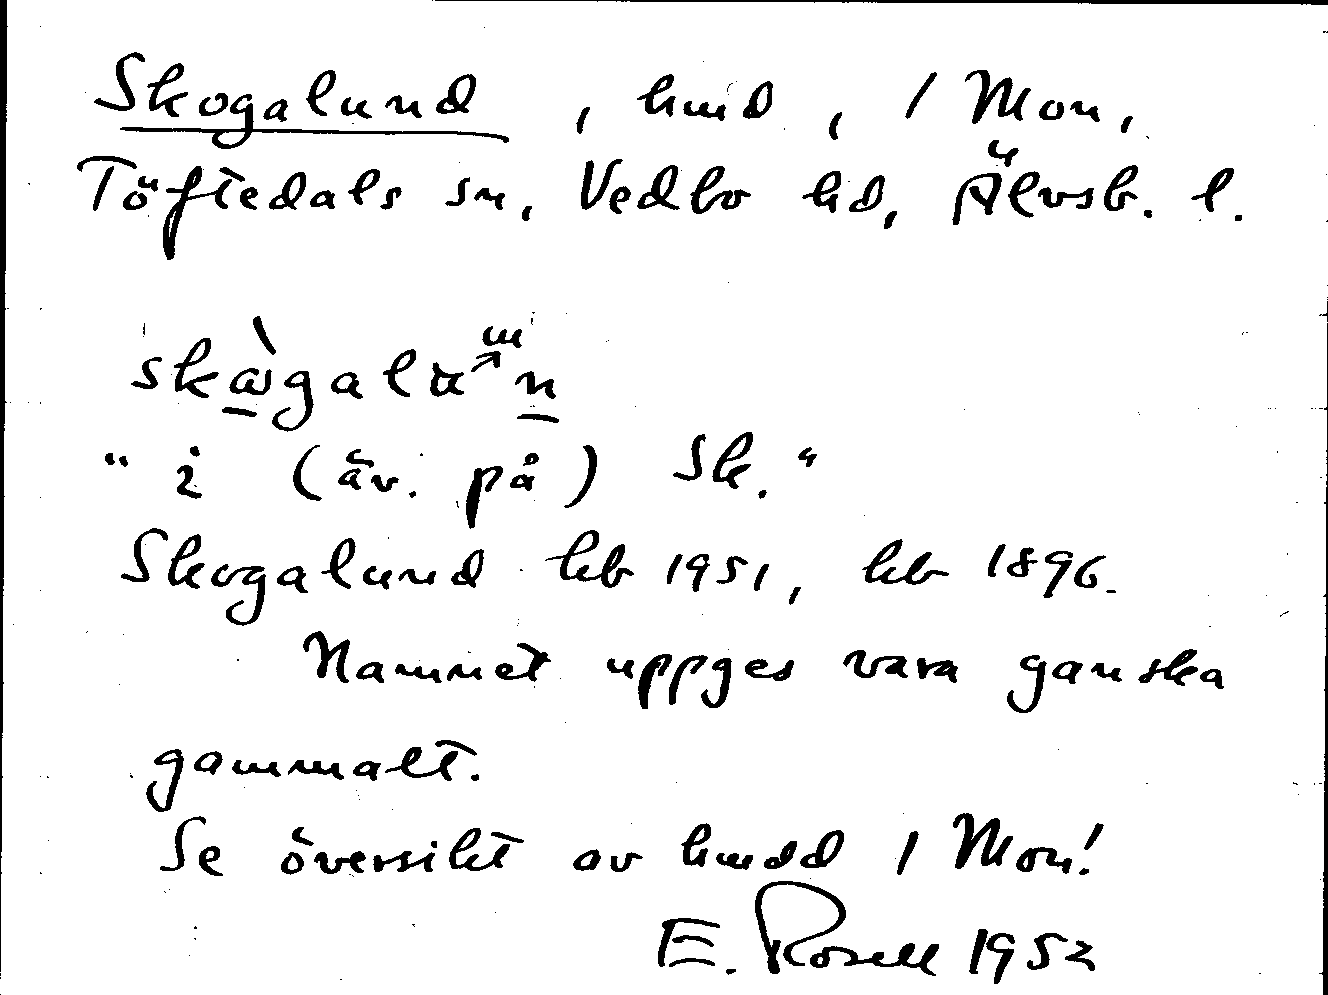 Skogalund, hmd, 1 Mon,
Töftedals sn, Vedbo hd, Älvsb. l.
"i (äv. på) Sk."
Skogalund kb 1951, kb 1896.
Namnet uppges vara ganska
gammalt.
Se översikt av hmdd 1 Mon!
E. Rosell 1952